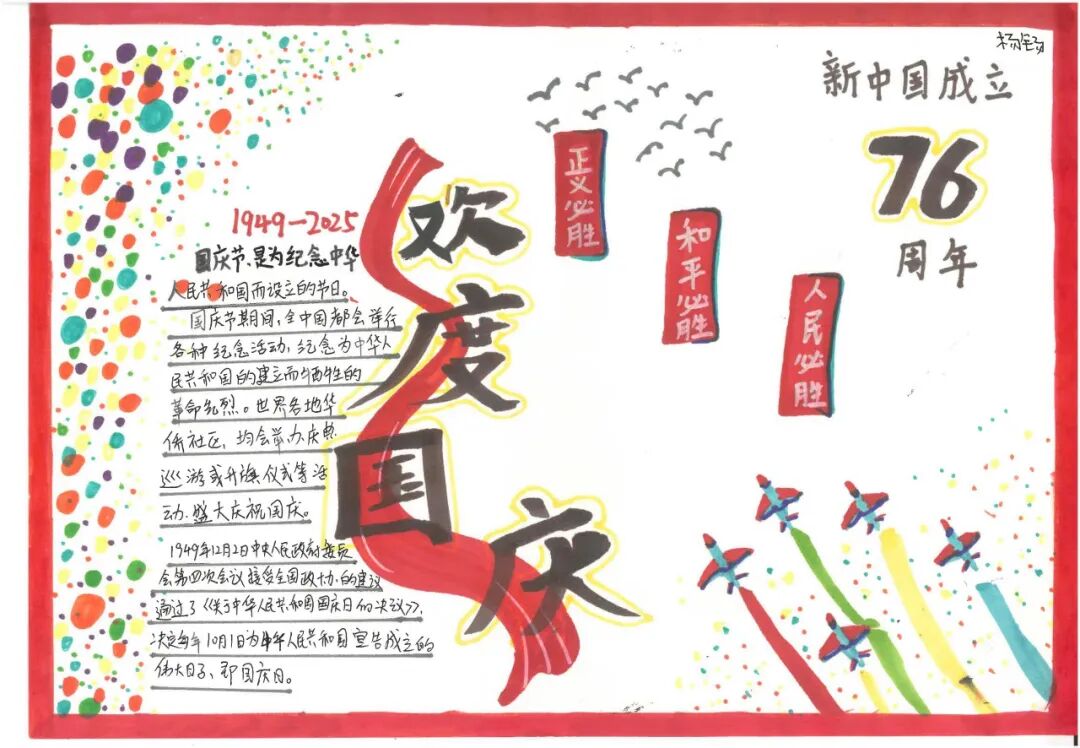 新中国成立
76
周年
正义必胜
和平必胜
人民必胜
欢度国庆
1949-2025
国庆节、是为纪念中华
人民共和国而设立的节日。
国庆节期间,全中国都会举行
各种纪念活动,纪念为中华人
民共和国的建立而牺牲的
革命先烈。世界各地华
侨社区,均会举办庆典
巡游或升旗仪式等活
动、盛大庆祝国庆。
1949年12月2日中央人民政府委员
会第四次会议接受全国政协的建议
通过了《关于中华人民共和国国庆日的决议》,
决定每年10月1日为中华人民共和国宣告成立的
伟大日子、即国庆日。